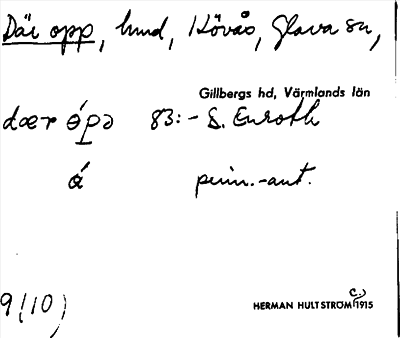 Där opp, lund, Hövås, Glava sn,
Gillbergs hd, Värmlands län
dær ǫ́pə 83:- S. Enroth
ǫ́ prim.-ant.
9(10)
HERMAN HULTSTRÖM c. 1915